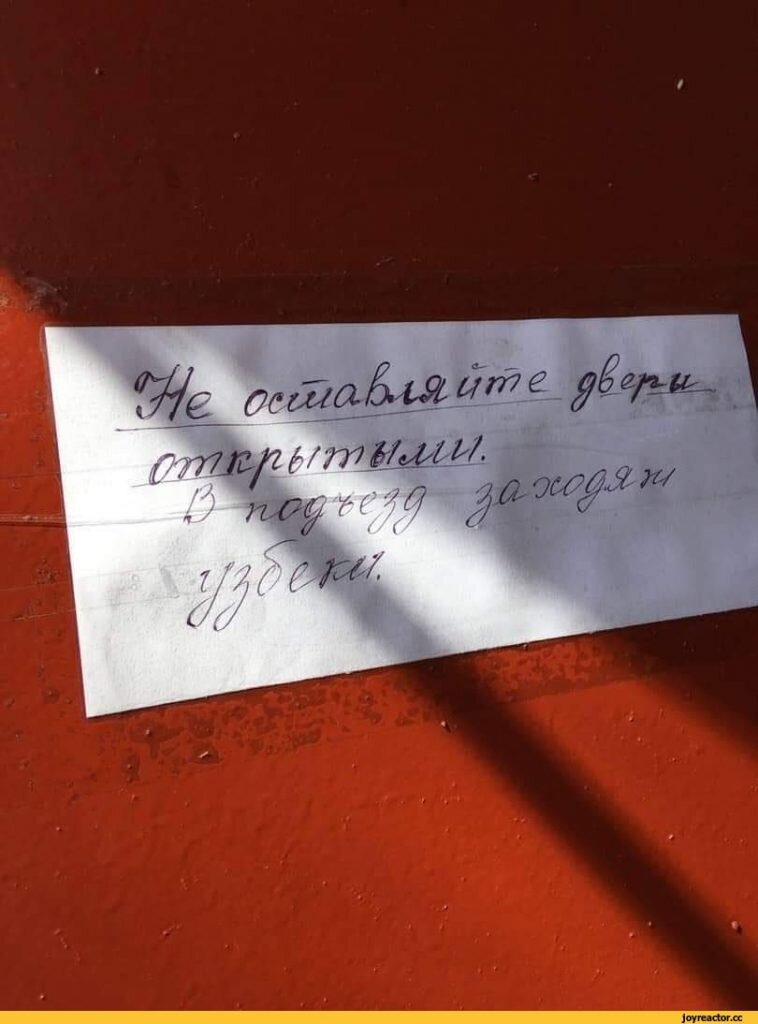 Не оставляйте двери
открытыми.
В подъезд заходят
узбеки.
joyreactor.cc